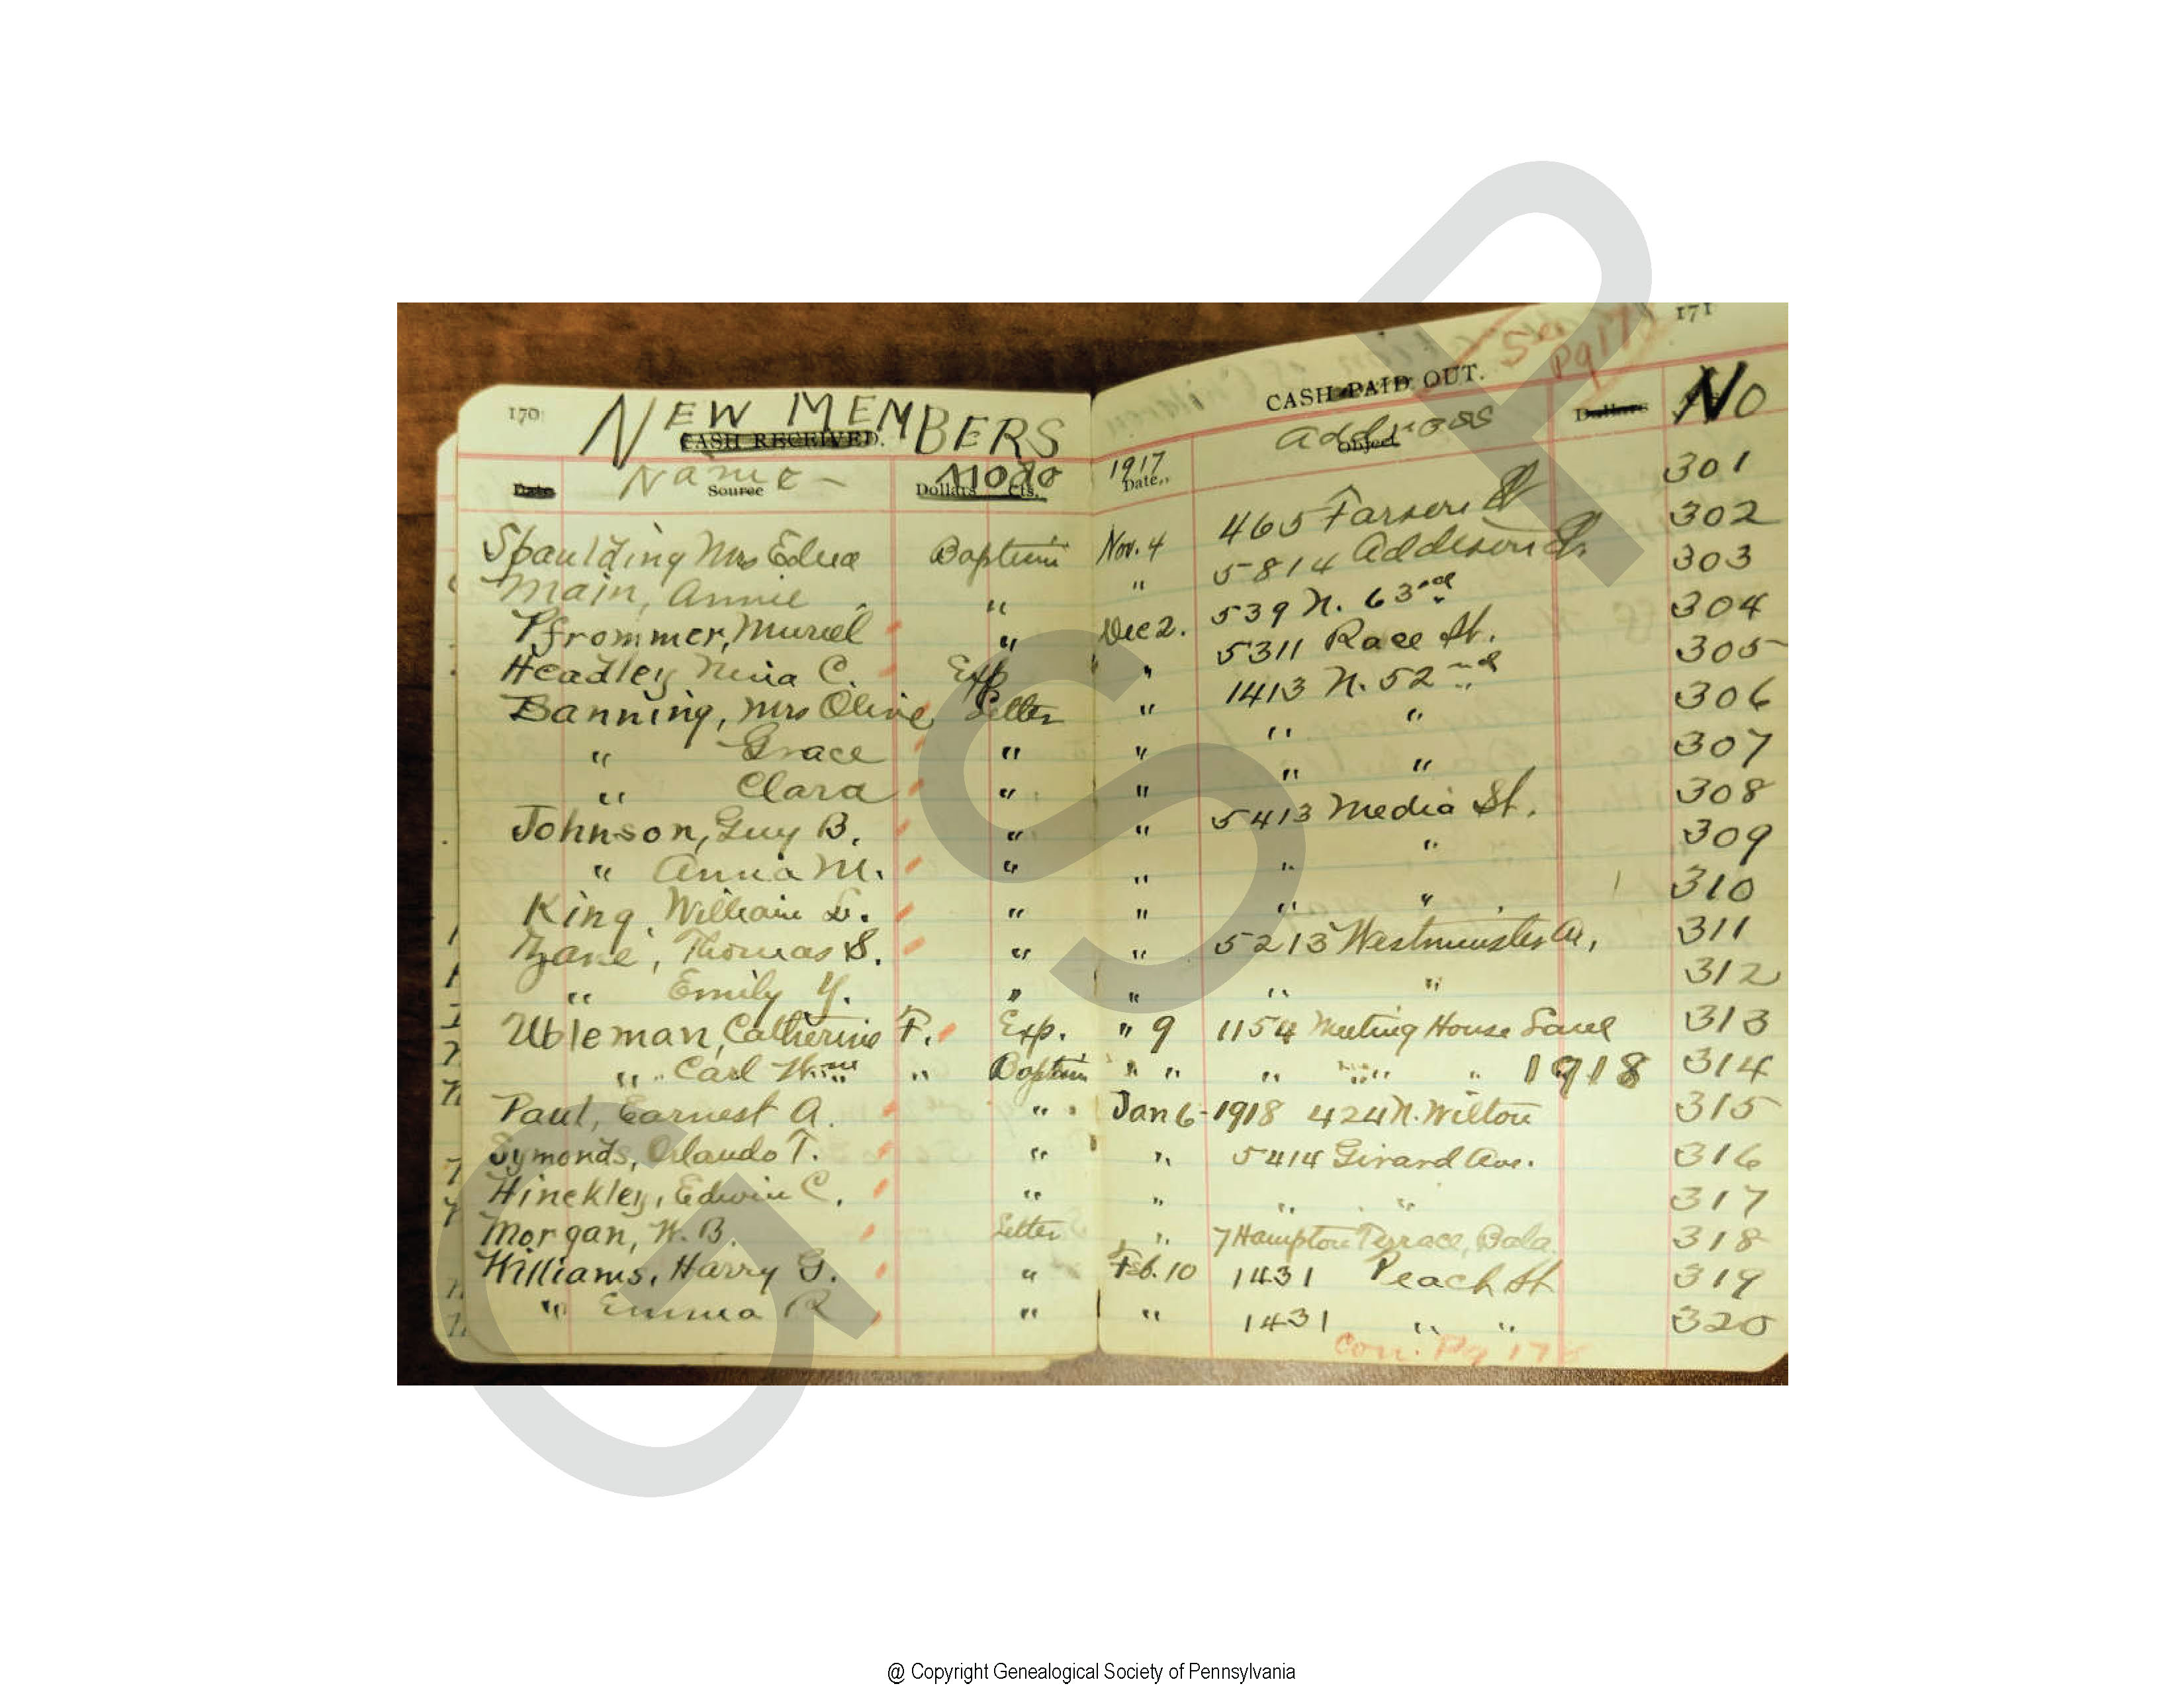 170 NEW MEMBERS
CASH RECEIVED.
Date Name - Source Mode Dollars Cts.
171
See
pg 17
CASH PAID OUT.
1917 Date. Address Object Dollars No
Spaulding Mrs Edna Baptism Nov. 4 465 Farson St 301
Main, Annie " " 5814 Addison St. 302
Pfrommer, Muriel " Dec 2. 539 N. 63rd 303
Headley Nina C. Exp " 5311 Race St. 304
Banning, Mrs Olive Letter " 1413 N. 52nd 305
" Grace " " " " 306
" Clara " " " " 307
Johnson, Guy B. " " 5413 Media St. 308
" Anna M. " " " " 309
King, William L. " " " " 310
Zane, Thomas S. " " 5213 Westminster Av, 311
" Emily Y. " " " " 312
Ubleman, Catherine F. Exp. " 9 1154 Meeting House Lane 313
" Carl Wm " Baptism " " " " " 1918 314
Paul, Earnest A. " Jan 6-1918 424 N. Wilton 315
Symonds, Orlando T. " " 5414 Girard Ave. 316
Hinckley, Edwin C. " " " " 317
Morgan, W. B. Letter " 7 Hampton Terrace, Bala 318
Williams, Harry G. " Feb. 10 1431 Peach St 319
" Emma R " " 1431 " " 320
Con. Pg 17
GSP
@ Copyright Genealogical Society of Pennsylvania